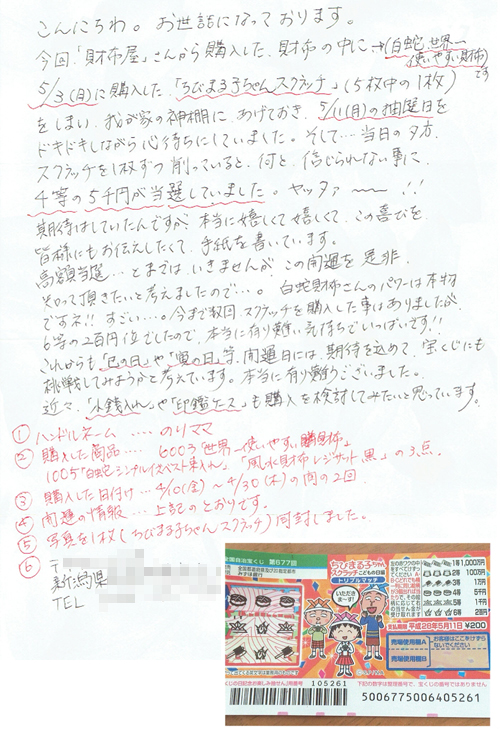 こんにちわ。お世話になっております。
今回「財布屋」さんから購入した、財布の中に→(白蛇、世界一
使いやすい財布)
です
5/3(日)に購入した、「ちびまる子ちゃんスクラッチ」(5枚中の1枚)
をしまい、我が家の神棚に、あげておき、5/11(月)の抽選日を
ドキドキしながら心待ちにしていました。そして…当日の夕方、
スクラッチを1枚ずつ削っていると、何と、信じられない事に、
4等の5千円が当選していました。ヤッタァ〜〜!!
期待はしていたんですが、本当に嬉しくて嬉しくて、この喜びを、
皆様にもお伝えしたくて、手紙を書いています。
高額当選…とまでは、いきませんが、この開運を是非、
知って頂きたいと考えましたので…。白蛇財布さんのパワーは本物
ですネ!!すごい…。今まで数回、スクラッチを購入した事はありましたが、
6等の2百円位でしたので、本当に有り難い気持ちでいっぱいです!!
これからも「巳の日」や「寅の日」等、開運日には、期待を込めて、宝くじにも
挑戦してみようかと考えています。本当に有り難うございました。
近々、「小銭入れ」や「印鑑ケース」も購入を検討してみたいと思っています。
① ハンドルネーム……のりママ
② 購入した商品……6003「世界一使いやすい財布」
1005「白蛇シンプルイズベスト束入れ」「風水財布レジザット黒」の3点。
③ 購入した日付け…4/10(金)〜4/30(木)の間の2回。
④ 開運の情報…上記のとおりです。
⑤ 写真を1枚(ちびまる子ちゃんスクラッチ)同封しました。
⑥ 〒
新潟県
TEL
第677回
ちびまる子ちゃん
スクラッチこどもの日編
トリプルマッチ
いただき
まーす!
1等1,000万円
2等100万円
3等5万円
4等5千円
5等1千円
6等200円
支払期限 平成28年5月11日 ¥200
売場使用欄A
売場使用欄B
お客様はここをけずら
ないでください
105261
下記の数字は管理番号で、宝くじの番号ではありません
5006775006405261